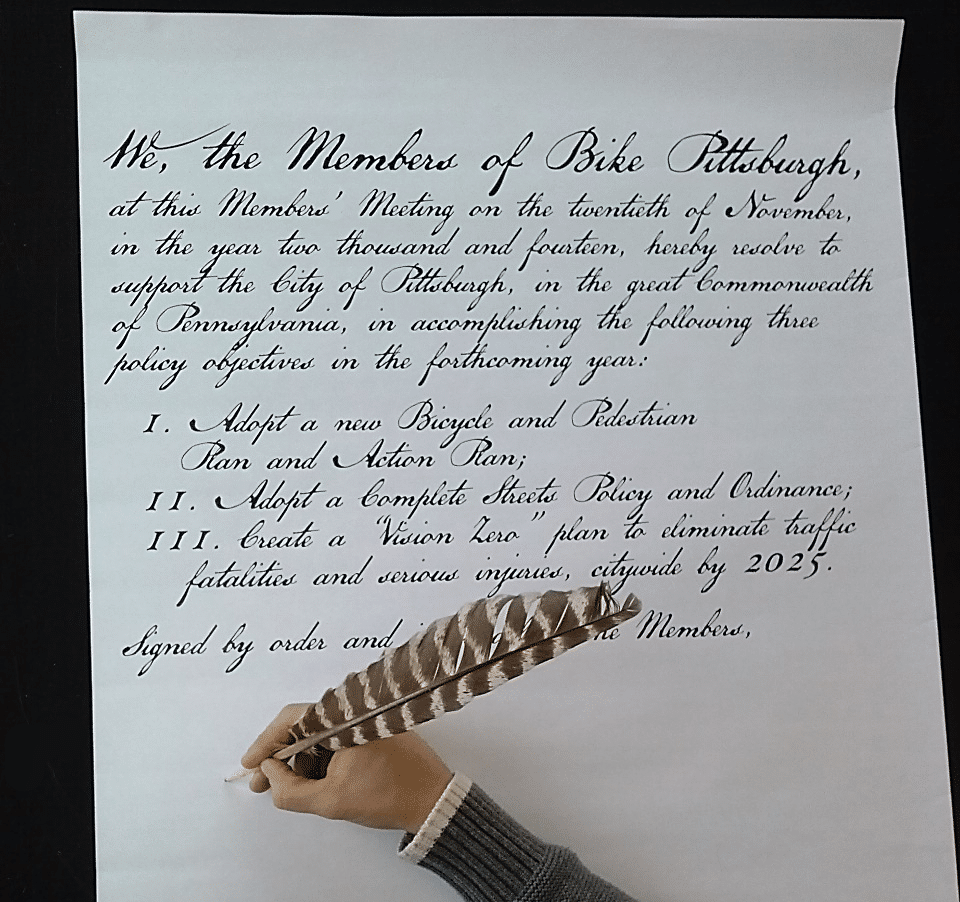 We, the Members of Bike Pittsburgh,
at this Members' Meeting on the twentieth of November,
in the year two thousand and fourteen, hereby resolve to
support the City of Pittsburgh, in the great Commonwealth
of Pennsylvania, in accomplishing the following three
policy objectives in the forthcoming year:
I. Adopt a new Bicycle and Pedestrian
Plan and Action Plan;
II. Adopt a Complete Streets Policy and Ordinance;
III. Create a "Vision Zero" plan to eliminate traffic
fatalities and serious injuries, citywide by 2025.
Signed by order and Members,